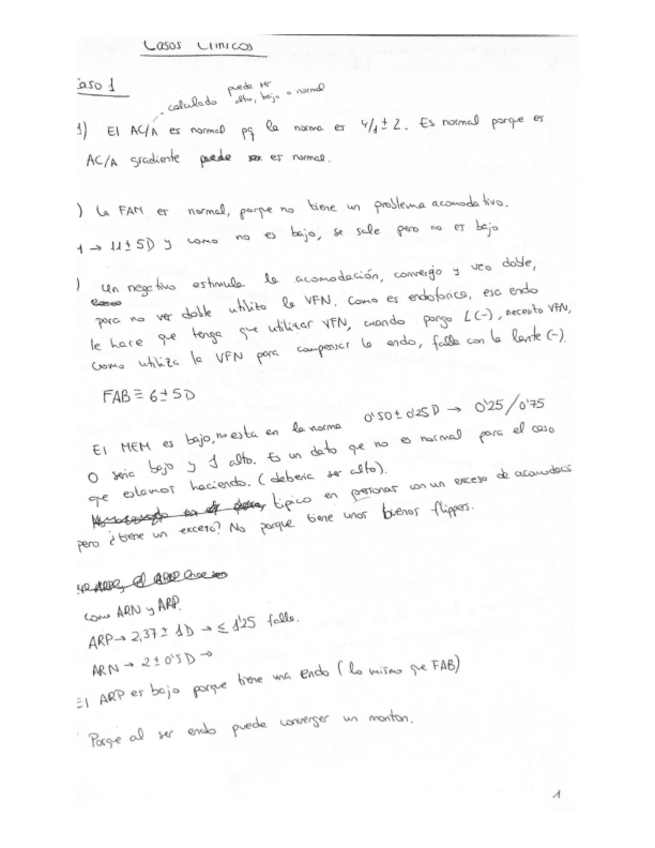 Casos Clinicos
aso 1
puede ser
alto, bajo o normal
calculado
1) El AC/A es normal pq la norma es 4/1 ± 2. Es normal porque es
AC/A gradiente puede es normal.
) La FAM es normal, porque no tiene un problema acomodativo.
1 → 11 ± 5D y como no es bajo, se sale pero no es bajo
) Un negativo estimula la acomodación, converjo y veo doble,
para no ver doble utilizo la VFN. Como es endoforica, esa endo
le hace que tenga que utilizar VFN, cuando pongo L(-), necesito VFN,
como utiliza la VFN para compensar la endo, falla con la lente (-).
FAB = 6 ± 5D
El MEM es bajo, no esta en la norma 0'50 ± 0'25D → 0'25/0'75
0 seria bajo y 1 alto. Es un dato que no es normal para el caso
que estamos haciendo. (deberia ser alto).
tipico en personas con un exceso de acomodacs
pero ¿tiene un exceso? No porque tiene unos buenos flippers.
como ARN y ARP.
ARP → 2,37 ± 1D → ≤ 1'25 falla.
ARN → 2 ± 0'5D →
El ARP es bajo porque tiene una endo (lo mismo que FAB)
Porque al ser endo puede converger un monton.
1